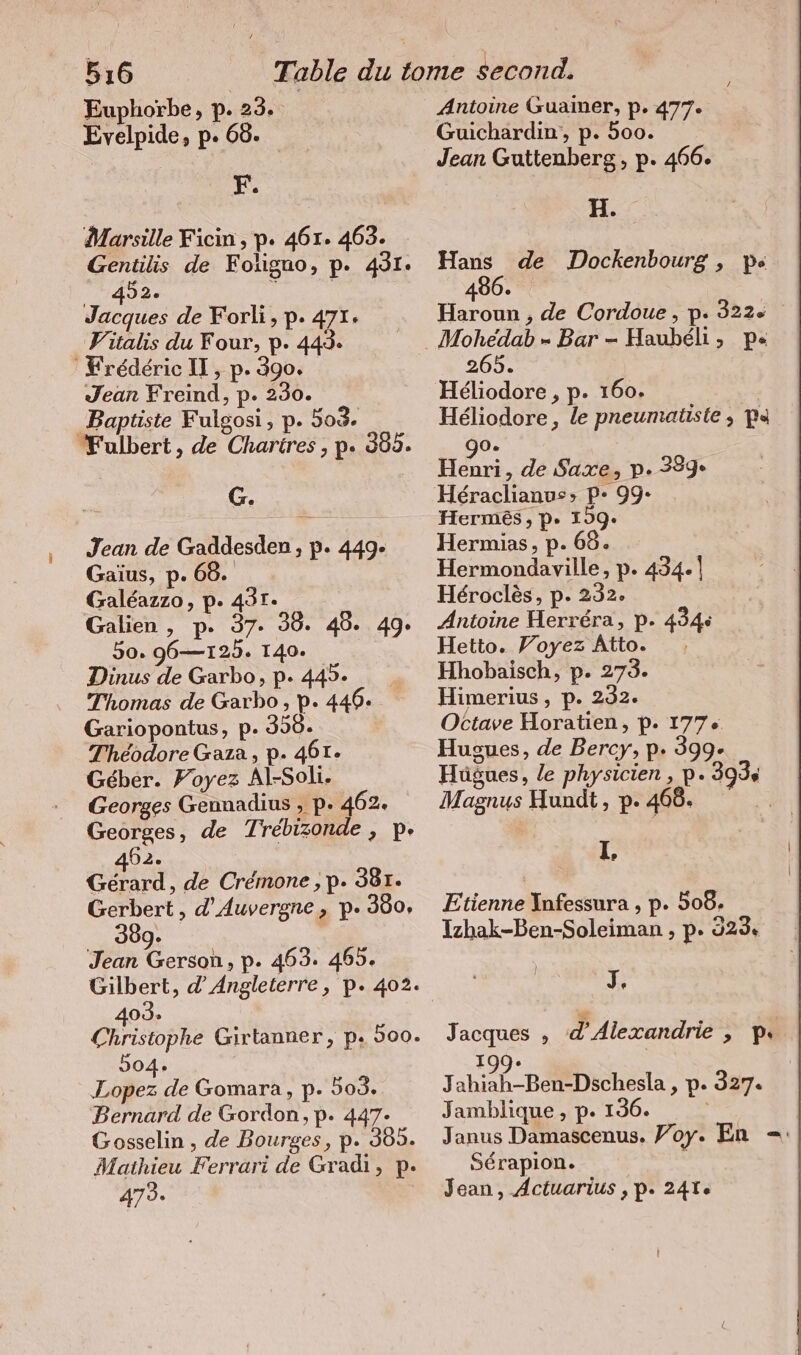 516 Table du tome second.
Euphorbe, p. 23.
Evelpide, p. 68.
F.
Marsille Ficin, p. 461. 463.
Gentilis de Foligno, p. 431.
452.
Jacques de Forli, p. 471.
Vitalis du Four, p. 443.
Frédéric II, p. 390.
Jean Freind, p. 230.
Baptiste Fulgosi, p. 503.
Fulbert, de Chartres, p. 385.
G.
Jean de Gaddesden, p. 449.
Gaïus, p. 68.
Galéazzo, p. 431.
Galien, p. 37. 38. 48. 49.
50. 96—125. 140.
Dinus de Garbo, p. 445.
Thomas de Garbo, p. 446.
Gariopontus, p. 358.
Théodore Gaza, p. 461.
Géber. Voyez Al-Soli.
Georges Gennadius, p. 462.
Georges, de Trébizonde, p.
462.
Gérard, de Crémone, p. 381.
Gerbert, d'Auvergne, p. 380,
389.
Jean Gerson, p. 463. 465.
Gilbert, d'Angleterre, p. 402.
403.
Christophe Girtanner, p. 500.
504.
Lopez de Gomara, p. 503.
Bernard de Gordon, p. 447.
Gosselin, de Bourges, p. 385.
Mathieu Ferrari de Gradi, p.
473.
Antoine Guainer, p. 477.
Guichardin, p. 500.
Jean Guttenberg, p. 466.
H.
Hans de Dockenbourg, p.
486.
Haroun, de Cordoue, p. 322.
Mohédab-Bar-Haubéli, p.
265.
Héliodore, p. 160.
Héliodore, le pneumatiste, p.
90.
Henri, de Saxe, p. 389.
Héraclianus, p. 99.
Hermès, p. 159.
Hermias, p. 68.
Hermondaville, p. 434.
Héroclès, p. 232.
Antoine Herréra, p. 434.
Hetto. Voyez Atto.
Hhobaisch, p. 273.
Himerius, p. 232.
Octave Horatien, p. 177.
Hugues, de Bercy, p. 399.
Hugues, le physicien, p. 393.
Magnus Hundt, p. 468.
I.
Etienne Infessura, p. 508.
Izhak-Ben-Soleiman, p. 323.
J.
Jacques, d'Alexandrie, p.
199.
Jahiah-Ben-Dschesla, p. 327.
Jamblique, p. 136.
Janus Damascenus. Voy. En
Sérapion.
Jean, Actuarius, p. 241.